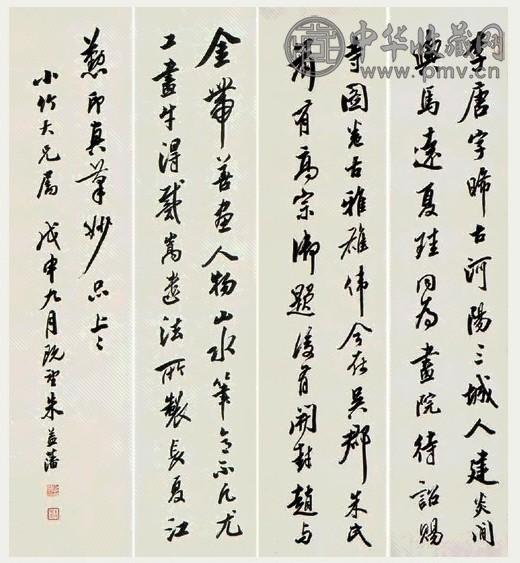 中华收藏网
www.pmv.cn
李唐字晞古河陽三城人建炎間
與馬遠夏珪同為畫院待詔賜
寺圖卷古雅雄伟今在吴郡朱氏
有高宗御題後有開封趙与
金帶善畫人物山水筆意不凡尤
工畫牛得戴嵩遺法所製長夏江
懃印真筆妙品上々
小竹大兄屬 戊申九月既望朱益藩